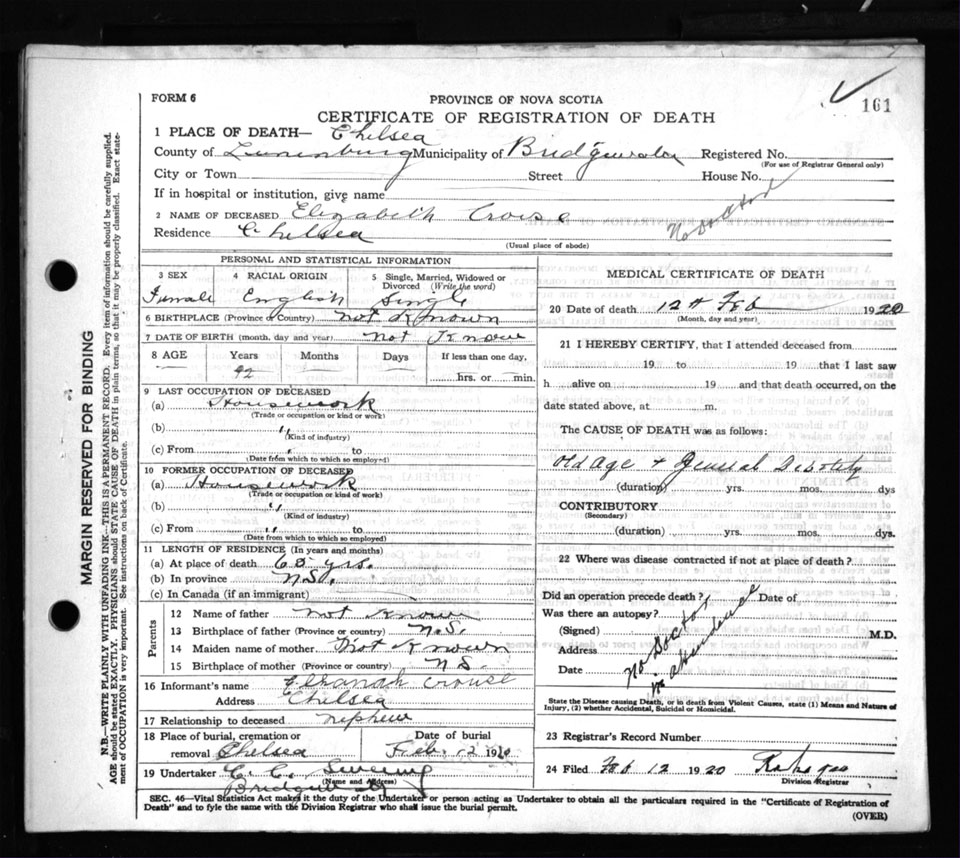 FORM 6
PROVINCE OF NOVA SCOTIA
161
CERTIFICATE OF REGISTRATION OF DEATH
1 PLACE OF DEATH— Chelsea
County of Lunenburg Municipality of Bridgewater Registered No.
(For use of Registrar General only)
City or Town Street House No.
If in hospital or institution, give name
2 NAME OF DECEASED Elizabeth Crouse
No Doctor
Residence Chelsea
(Usual place of abode)
PERSONAL AND STATISTICAL INFORMATION
3 SEX 4 RACIAL ORIGIN 5 Single, Married, Widowed or Divorced (Write the word)
Female English Single
6 BIRTHPLACE (Province or Country) not Known
7 DATE OF BIRTH (month, day and year) not Know
8 AGE Years Months Days If less than one day,
92 hrs. or min.
9 LAST OCCUPATION OF DECEASED
(a) Housework
(Trade or occupation or kind or work)
(b) "
(Kind of industry)
(c) From "
(Date from which to which so employed)
10 FORMER OCCUPATION OF DECEASED
(a) Housework
(Trade or occupation or kind of work)
(b) "
(Kind of industry)
(c) From "
(Date from which to which so employed)
11 LENGTH OF RESIDENCE (In years and months)
(a) At place of death yrs.
(b) In province N.S.
(c) In Canada (if an immigrant)
Parents
12 Name of father not Know
13 Birthplace of father (Province or country) N.S.
14 Maiden name of mother not Known
15 Birthplace of mother (Province or country) N.S.
16 Informant's name Elkanah Crouse
Address Chelsea
17 Relationship to deceased nephew
18 Place of burial, cremation or Date of burial
removal Chelsea Feb 12 1920
19 Undertaker C. C.
(Name and Address)
Bridgewater
MEDICAL CERTIFICATE OF DEATH
20 Date of death 12th Feb 1920
(Month, day and year)
21 I HEREBY CERTIFY, that I attended deceased from
19 to 19 that I last saw
h alive on 19 and that death occurred, on the
date stated above, at m.
The CAUSE OF DEATH was as follows:
old age + general debility
(duration) yrs. mos. dys
CONTRIBUTORY
(Secondary)
(duration) yrs. mos. dys.
22 Where was disease contracted if not at place of death?
Did an operation precede death? Date of
Was there an autopsy?
(Signed) M.D.
Address
Date
No Doctor
in attendance
State the Disease causing Death, or in death from Violent Causes, state (1) Means and Nature of
Injury, (2) whether Accidental, Suicidal or Homicidal.
23 Registrar's Record Number
24 Filed Feb 12 1920
Division Registrar
SEC. 46—Vital Statistics Act makes it the duty of the Undertaker or person acting as Undertaker to obtain all the particulars required in the "Certificate of Registration of
Death" and to fyle the same with the Division Registrar who shall issue the burial permit.
(OVER)
MARGIN RESERVED FOR BINDING
N.B.—WRITE PLAINLY WITH UNFADING INK—THIS IS A PERMANENT RECORD. Every item of information should be carefully supplied.
AGE should be stated EXACTLY. PHYSICIANS should STATE CAUSE OF DEATH in plain terms, so that it may be properly classified. Exact state-
ment of OCCUPATION is very important. See instructions on back of Certificate.